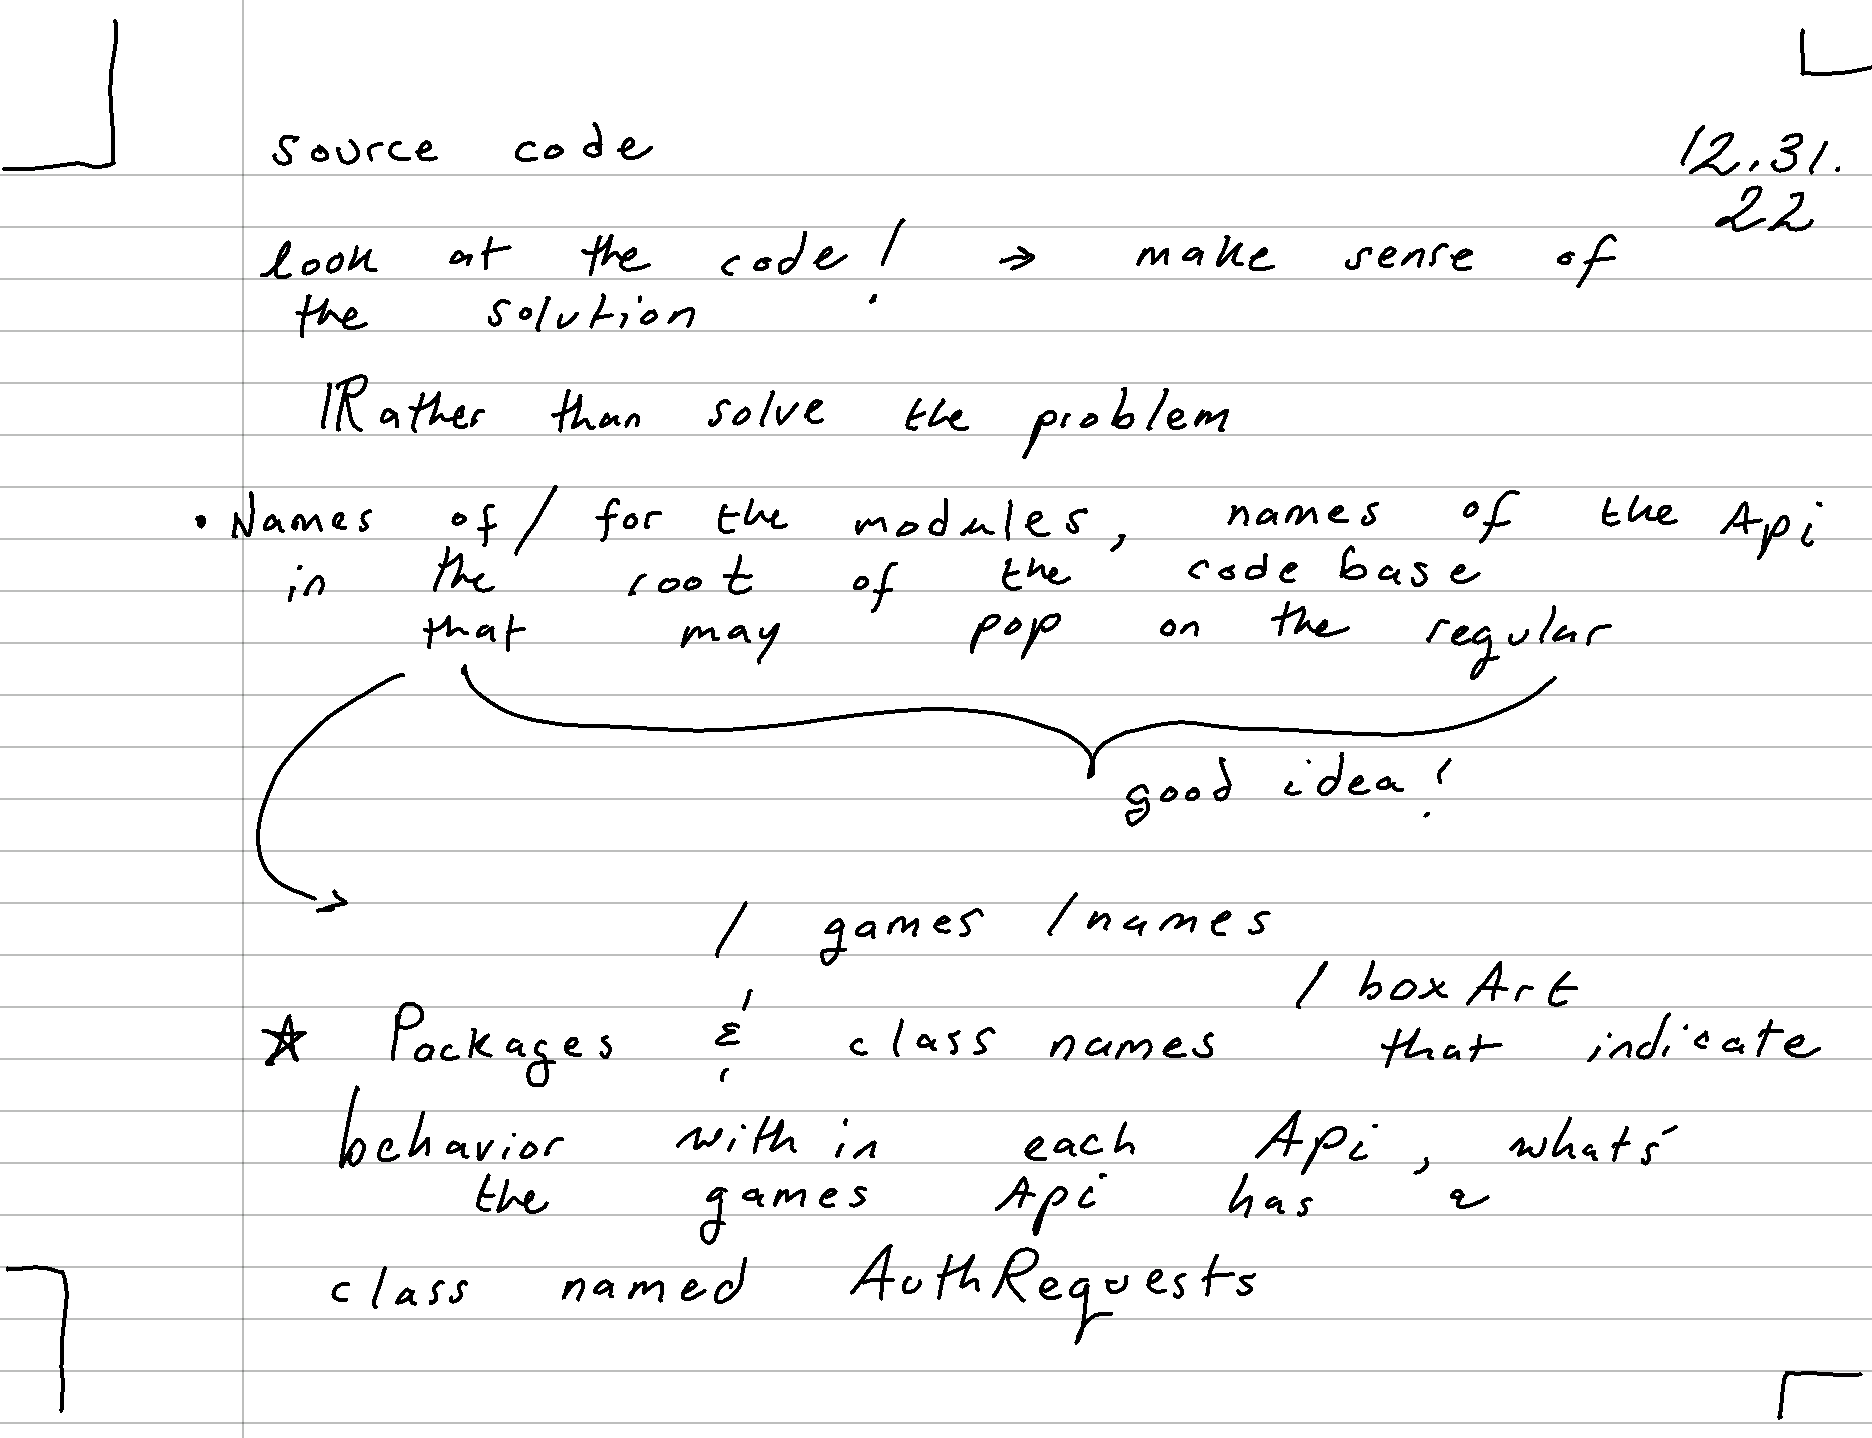 source code
12.31.
22
look at the code! → make sense of
the solution
Rather than solve the problem
• Names of / for the modules, names of the Api
in the root of the code base
that may pop on the regular
good idea!
/ games / names
/ boxArt
☆ Packages & class names that indicate
behavior with in each Api, what's
the games Api has a
class named AuthRequests